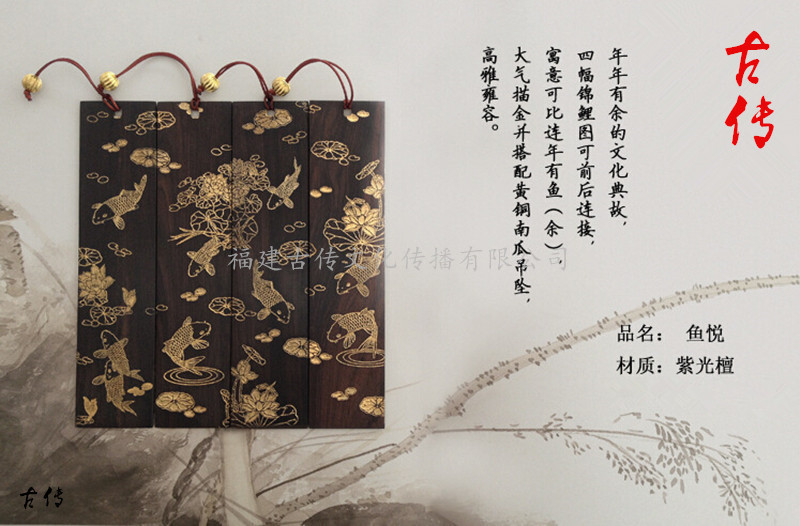 古传
年年有余的文化典故，
四幅锦鲤图可前后连接，
寓意可比连年有鱼（余）
大气描金并搭配黄铜南瓜吊坠，
高雅雍容。
福建古传文化传播有限公司
品名： 鱼悦
材质：紫光檀
古传